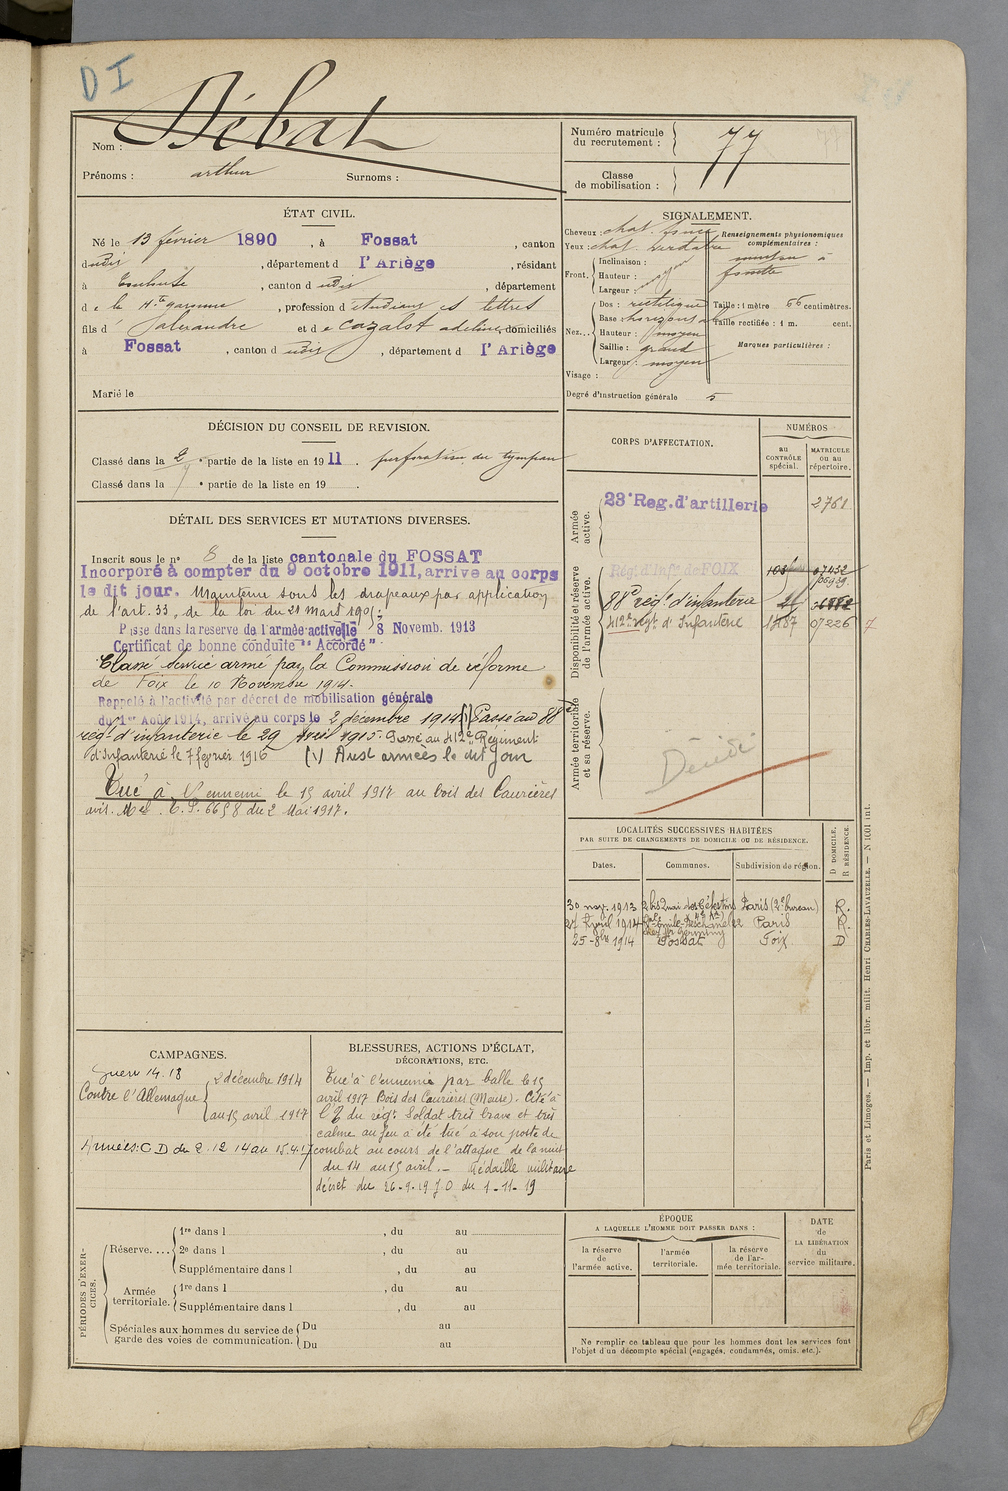 DI
Nom : Débat
Prénoms : arthur Surnoms :
Numéro matricule du recrutement : 77
Classe de mobilisation :
ÉTAT CIVIL.
Né le 13 février 1890, à Fossat, canton
dudit, département d l'Ariège, résidant
à Toulouse, canton d udit, département
d e la Hte garonne, profession d'étudiant es lettres
fils d' Jalexandre et d e Cazalot adeline, domiciliés
à Fossat, canton d udit, département d l'Ariège
Marié le
SIGNALEMENT.
Cheveux : chat. foncé
Yeux : chat. verdatre
Front. Inclinaison :
Hauteur : moyen
Largeur :
Nez... Dos : rectiligne
Base : horizontale
Hauteur : moyen
Saillie : grand
Largeur : moyen
Visage :
Renseignements physionomiques complémentaires :
menton à
fossette
Taille : 1 mètre 66 centimètres.
Taille rectifiée : 1 m. cent.
Marques particulières :
Degré d'instruction générale 5
DÉCISION DU CONSEIL DE REVISION.
Classé dans la 2e partie de la liste en 1911. perforation du tympan
Classé dans la e partie de la liste en 19 .
DÉTAIL DES SERVICES ET MUTATIONS DIVERSES.
Inscrit sous le n° 8 de la liste cantonale du FOSSAT
Incorporé à compter du 9 octobre 1911, arrive au corps
le dit jour. Maintenu sous les drapeaux par application
de l'art. 33, de la loi du 21 mars 1905.
Passe dans la reserve de l'armée active le 8 Novemb. 1913
Certificat de bonne conduite "Accordé"
Classé service armé par la Commission de réforme
de Foix le 10 Novembre 1914.
Rappelé à l'activité par décret de mobilisation générale
du 1er Août 1914, arrivé au corps le 2 décembre 1914 (1) Passé au 88e
rég. d'infanterie le 29 Avril 1915. Passé au 412e Régiment
d'Infanterie le 7 février 1916 (1) Aux armées le dit jour
Tué à l'ennemi le 15 avril 1917 au bois des Caurières
avis. Mel. C.P. 6658 du 2 Mai 1917.
CORPS D'AFFECTATION.
NUMÉROS
au CONTRÔLE spécial.
MATRICULE OU AU répertoire.
Armée active.
23e Reg. d'artillerie 2761
Disponibilité et réserve de l'armée active.
Rég. d'Infie de FOIX 07432
88e rég. d'infanterie
412e régt d'Infanterie 1787 07226
Armée territoriale et sa réserve.
Décédé
LOCALITÉS SUCCESSIVES HABITÉES
PAR SUITE DE CHANGEMENTS DE DOMICILE OU DE RÉSIDENCE.
Dates. Communes. Subdivision de région. D DOMICILE. R RÉSIDENCE.
30 nov. 1913 2 bis Quai des Célestins Paris (2e bureau) R.
27 Avril 1914 Emile Deschanel Paris R.
25-8bre 1914 Fossat Foix D
CAMPAGNES.
guerre 14.18
Contre l'Allemagne 2 décembre 1914
au 15 avril 1917
Armées: C D du 2.12.14 au 15.4.17
BLESSURES, ACTIONS D'ÉCLAT,
DÉCORATIONS, ETC.
Tué à l'ennemie par balle le 15
avril 1917 Bois des Caurières (Meuse). Cité à
l'O du régt. Soldat très brave et très
calme au feu a été tué à son poste de
combat au cours de l'attaque de la nuit
du 14 au 15 avril. – Médaille militaire
décret du 26-9-19 JO du 1-11-19
PÉRIODES D'EXERCICES.
Réserve.... 1re dans l , du au
2e dans l , du au
Supplémentaire dans l , du au
Armée territoriale. 1re dans l , du au
Supplémentaire dans l , du au
Spéciales aux hommes du service de garde des voies de communication. Du au
Du au
ÉPOQUE
A LAQUELLE L'HOMME DOIT PASSER DANS :
la réserve de l'armée active.
l'armée territoriale.
la réserve de l'armée territoriale.
DATE de LA LIBÉRATION du service militaire.
Ne remplir ce tableau que pour les hommes dont les services font
l'objet d'un décompte spécial (engagés, condamnés, omis, etc.).
Paris et Limoges. — Imp. et libr. milit. Henri CHARLES-LAVAUZELLE. — N 1001 int.